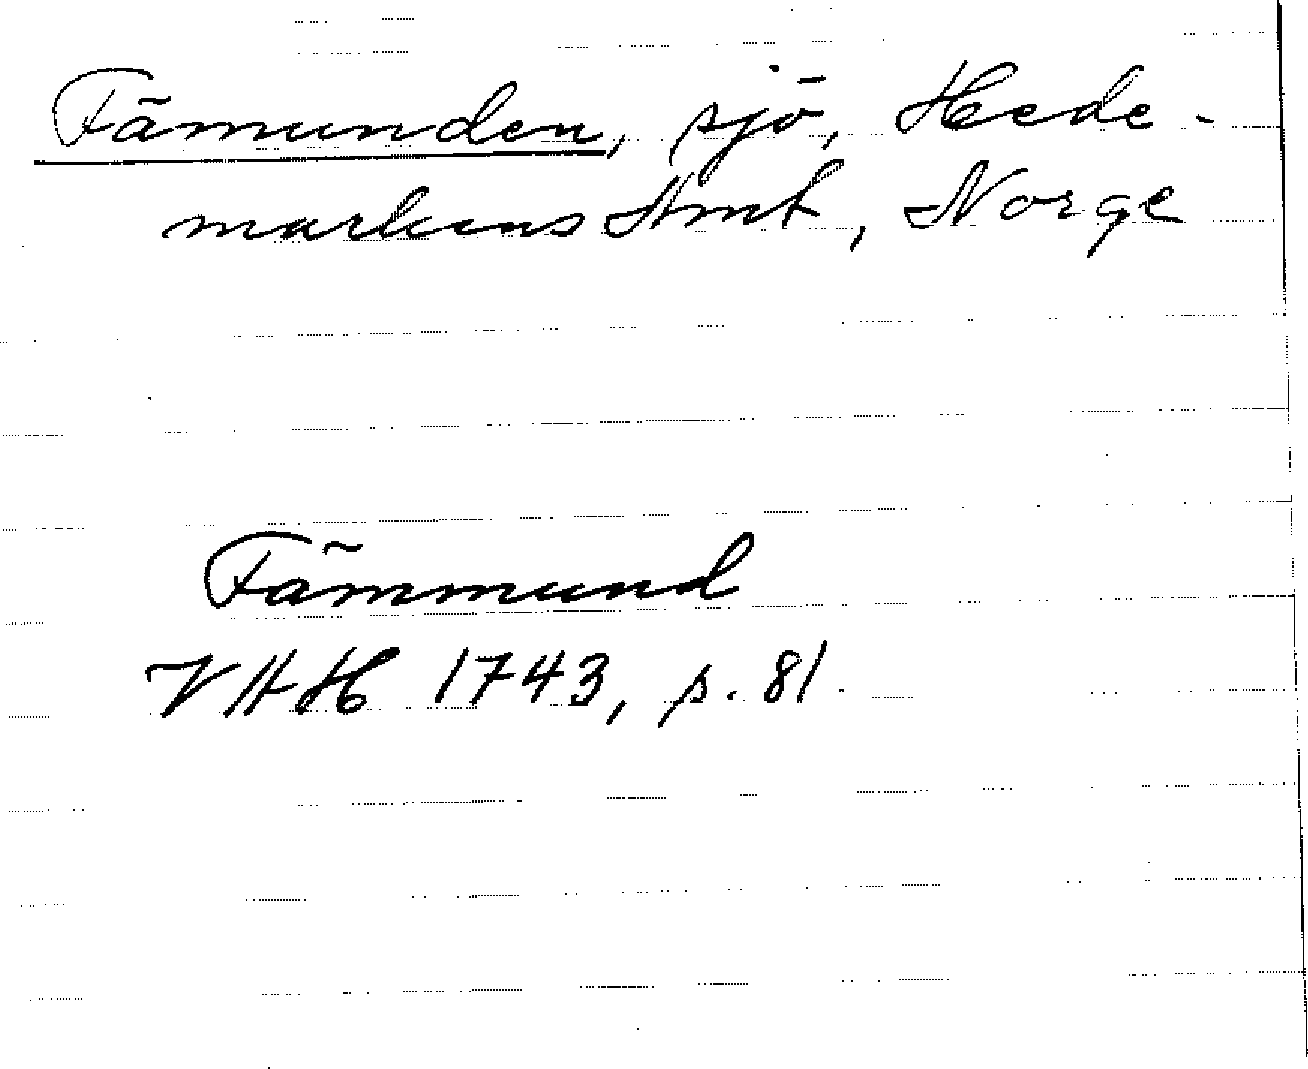 Fämunden, sjö, Hede-
markens Amt, Norge
Fämmund
VAH 1743, p. 81.